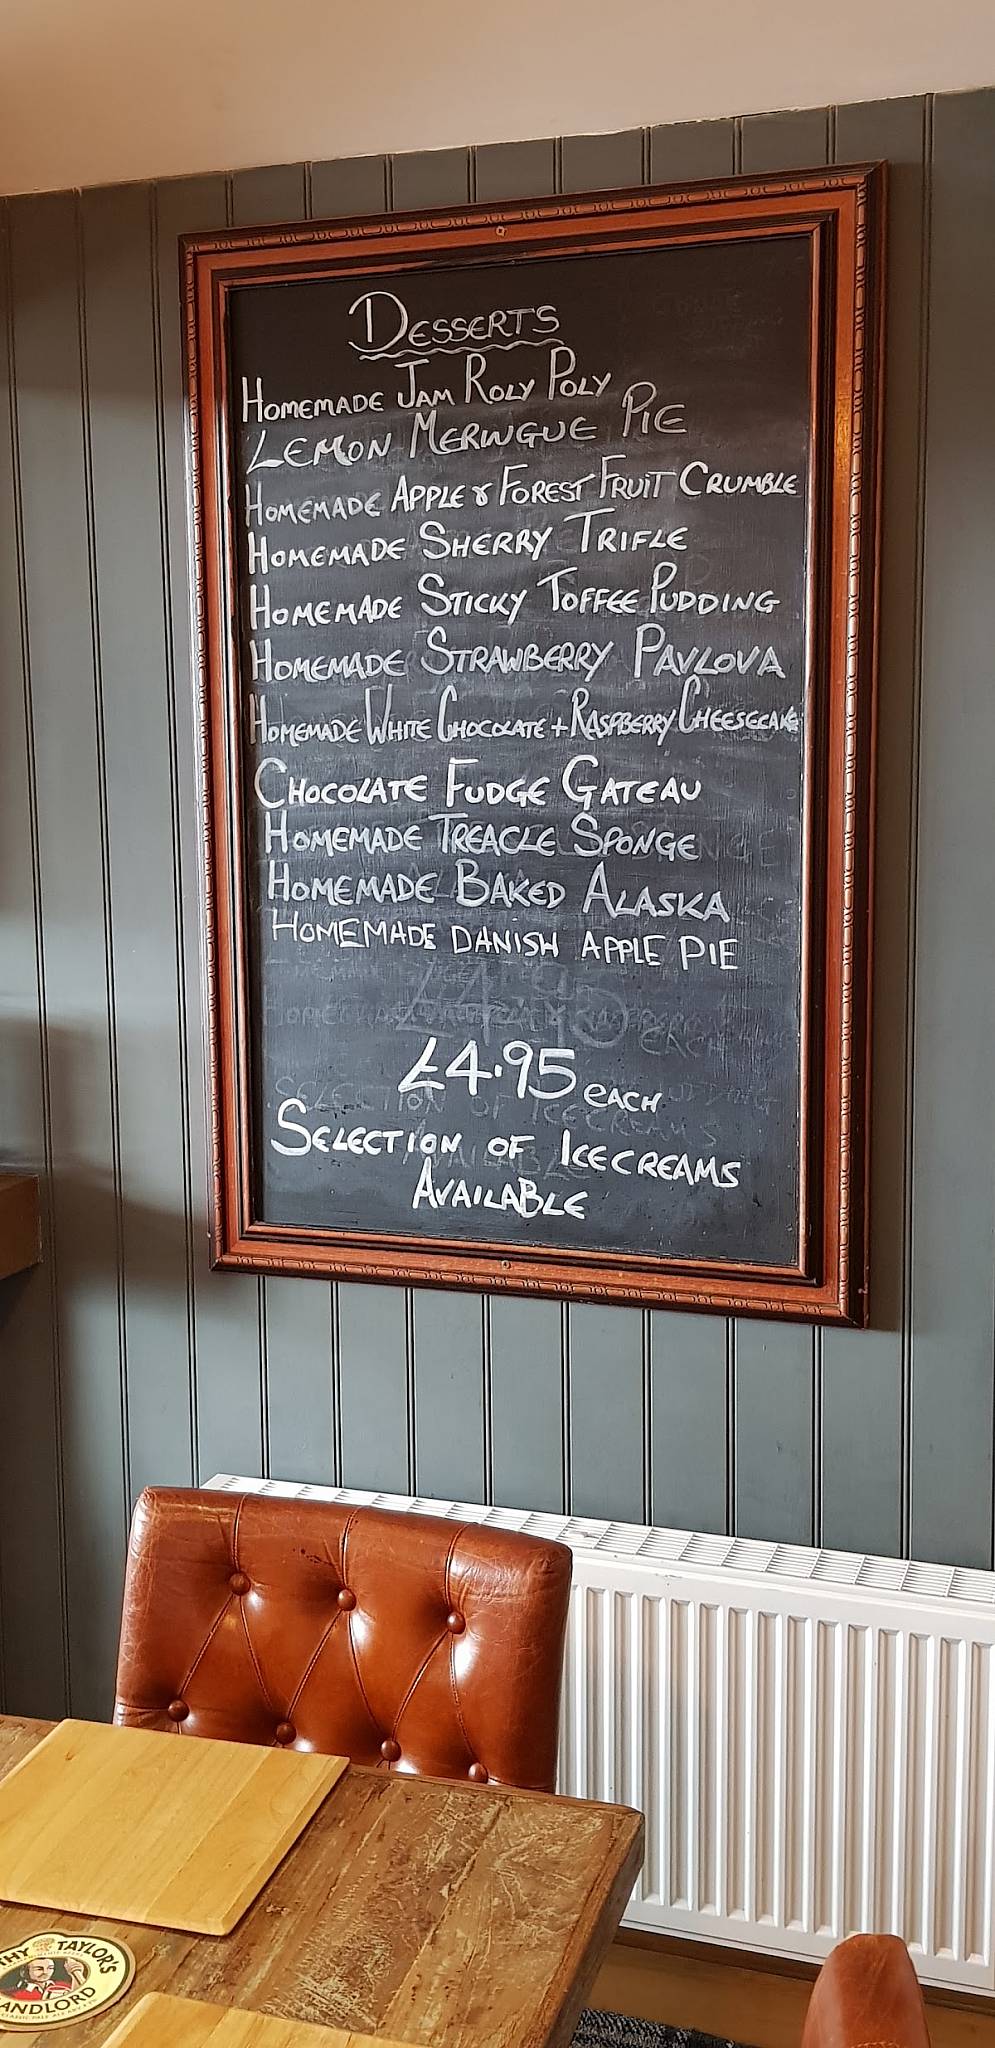 DESSERTS
HOMEMADE JAM ROLY POLY
LEMON MERINGUE PIE
HOMEMADE APPLE & FOREST FRUIT CRUMBLE
HOMEMADE SHERRY TRIFLE
HOMEMADE STICKY TOFFEE PUDDING
HOMEMADE STRAWBERRY PAVLOVA
HOMEMADE WHITE CHOCOLATE + RASPBERRY CHEESECAKE
CHOCOLATE FUDGE GATEAU
HOMEMADE TREACLE SPONGE
HOMEMADE BAKED ALASKA
HOMEMADE DANISH APPLE PIE
£4.95 EACH
SELECTION OF ICECREAMS
AVAILABLE
THY TAYLOR'S
ANDLORD
CLASSIC PALE ALE